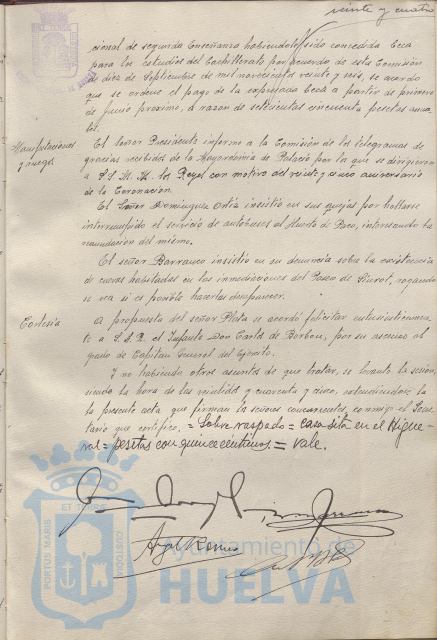 veinte y cuatro
cional de segunda Enseñanza habiendole sido concedida beca
para los estudios del Bachillerato por acuerdo de esta Comisión
de diez de Septiembre de mil novecientos veinte y seis, se acordó
que se ordene el pago de la expresada beca a partir de primero
de Junio proximo, á razon de setecientas cincuenta pesetas anua
les.
Manifestaciones
y ruegos
El señor Presidente informó a la Comisión de los telegramas de
gracias recibidos de la Mayordomia de Palacio por la que se dirigieron
a S.S. M.M. los Reyes con motivo del veinte y cinco aniversario
de la Coronación.
El Señor Dominguez Ortiz insistió en sus quejas por hallarse
interrumpido el servicio de autobuses al Huerto de Paco, interesando la
reanudación del mismo.
El señor Barranco insistió en su denuncia sobre la existencia
de cuevas habitadas en las inmediaciones del Paseo de, rogando
se vea si es posible hacerlas desaparecer.
Cortesía
A propuesta del señor Plata se acordó felicitar entusiasticamen
te a S.A.R. el Infante Don Carlos de Borbon, por su ascenso al
grado de Capitan General del Ejército.
Y no habiendo otros asuntos de que tratar, se levantó la sesión,
siendo la hora de las veintidós y cuarenta y cinco, extendiendose la
la presente acta que firman los señores concurrentes, conmigo el Secre
tario que certifico. = Sobre raspado = casa sita en el Higue
ral = pesetas con quince centimos = vale.
PORTUS MARIS
ET TERRÆ
CUSTODIA
Ayuntamiento de
HUELVA